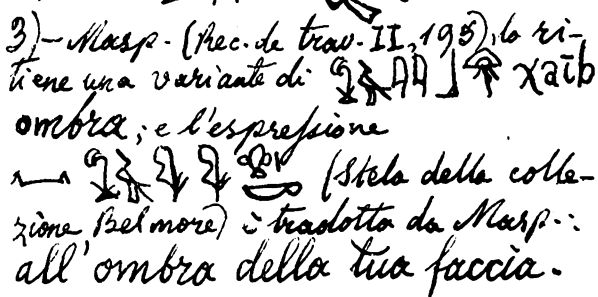 3)- Masp. (Rec. de trav. II, 195), lo ri-
tiene una variante di χaīb
ombra; e l'espreſsione
(Stela della colle-
zione Belmore) è tradotta da Masp.:
all'ombra della tua faccia.